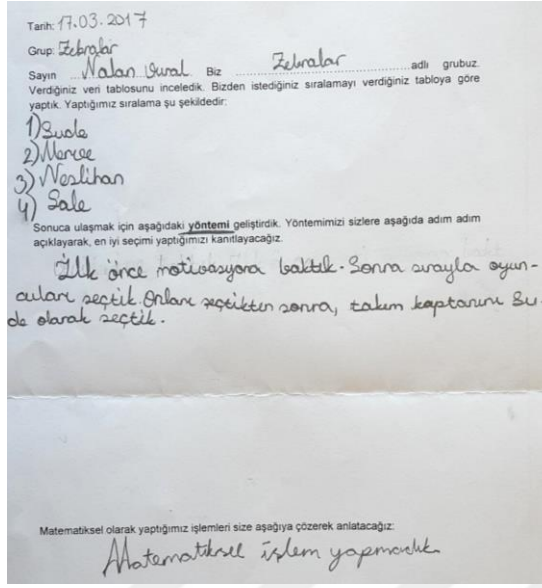 Tarih: 17.03.2017
Grup: Zebralar
Sayın ...Nalan Vural. Biz ....Zebralar....adlı grubuz.
Verdiğiniz veri tablosunu inceledik. Bizden istediğiniz sıralamayı verdiğiniz tabloya göre
yaptık. Yaptığımız sıralama şu şekildedir:
1) Sude
2) Merve
3) Neslihan
4) Sale
Sonuca ulaşmak için aşağıdaki yöntemi geliştirdik. Yöntemimizi sizlere aşağıda adım adım
açıklayarak, en iyi seçimi yaptığımızı kanıtlayacağız.
İlk önce motivasyona baktık. Sonra sırayla oyun-
cuları seçtik. Onları seçtikten sonra, takım kaptanını Su-
de olarak seçtik.
Matematiksel olarak yaptığımız işlemleri size aşağıya çözerek anlatacağız:
Matematiksel işlem yapmadık